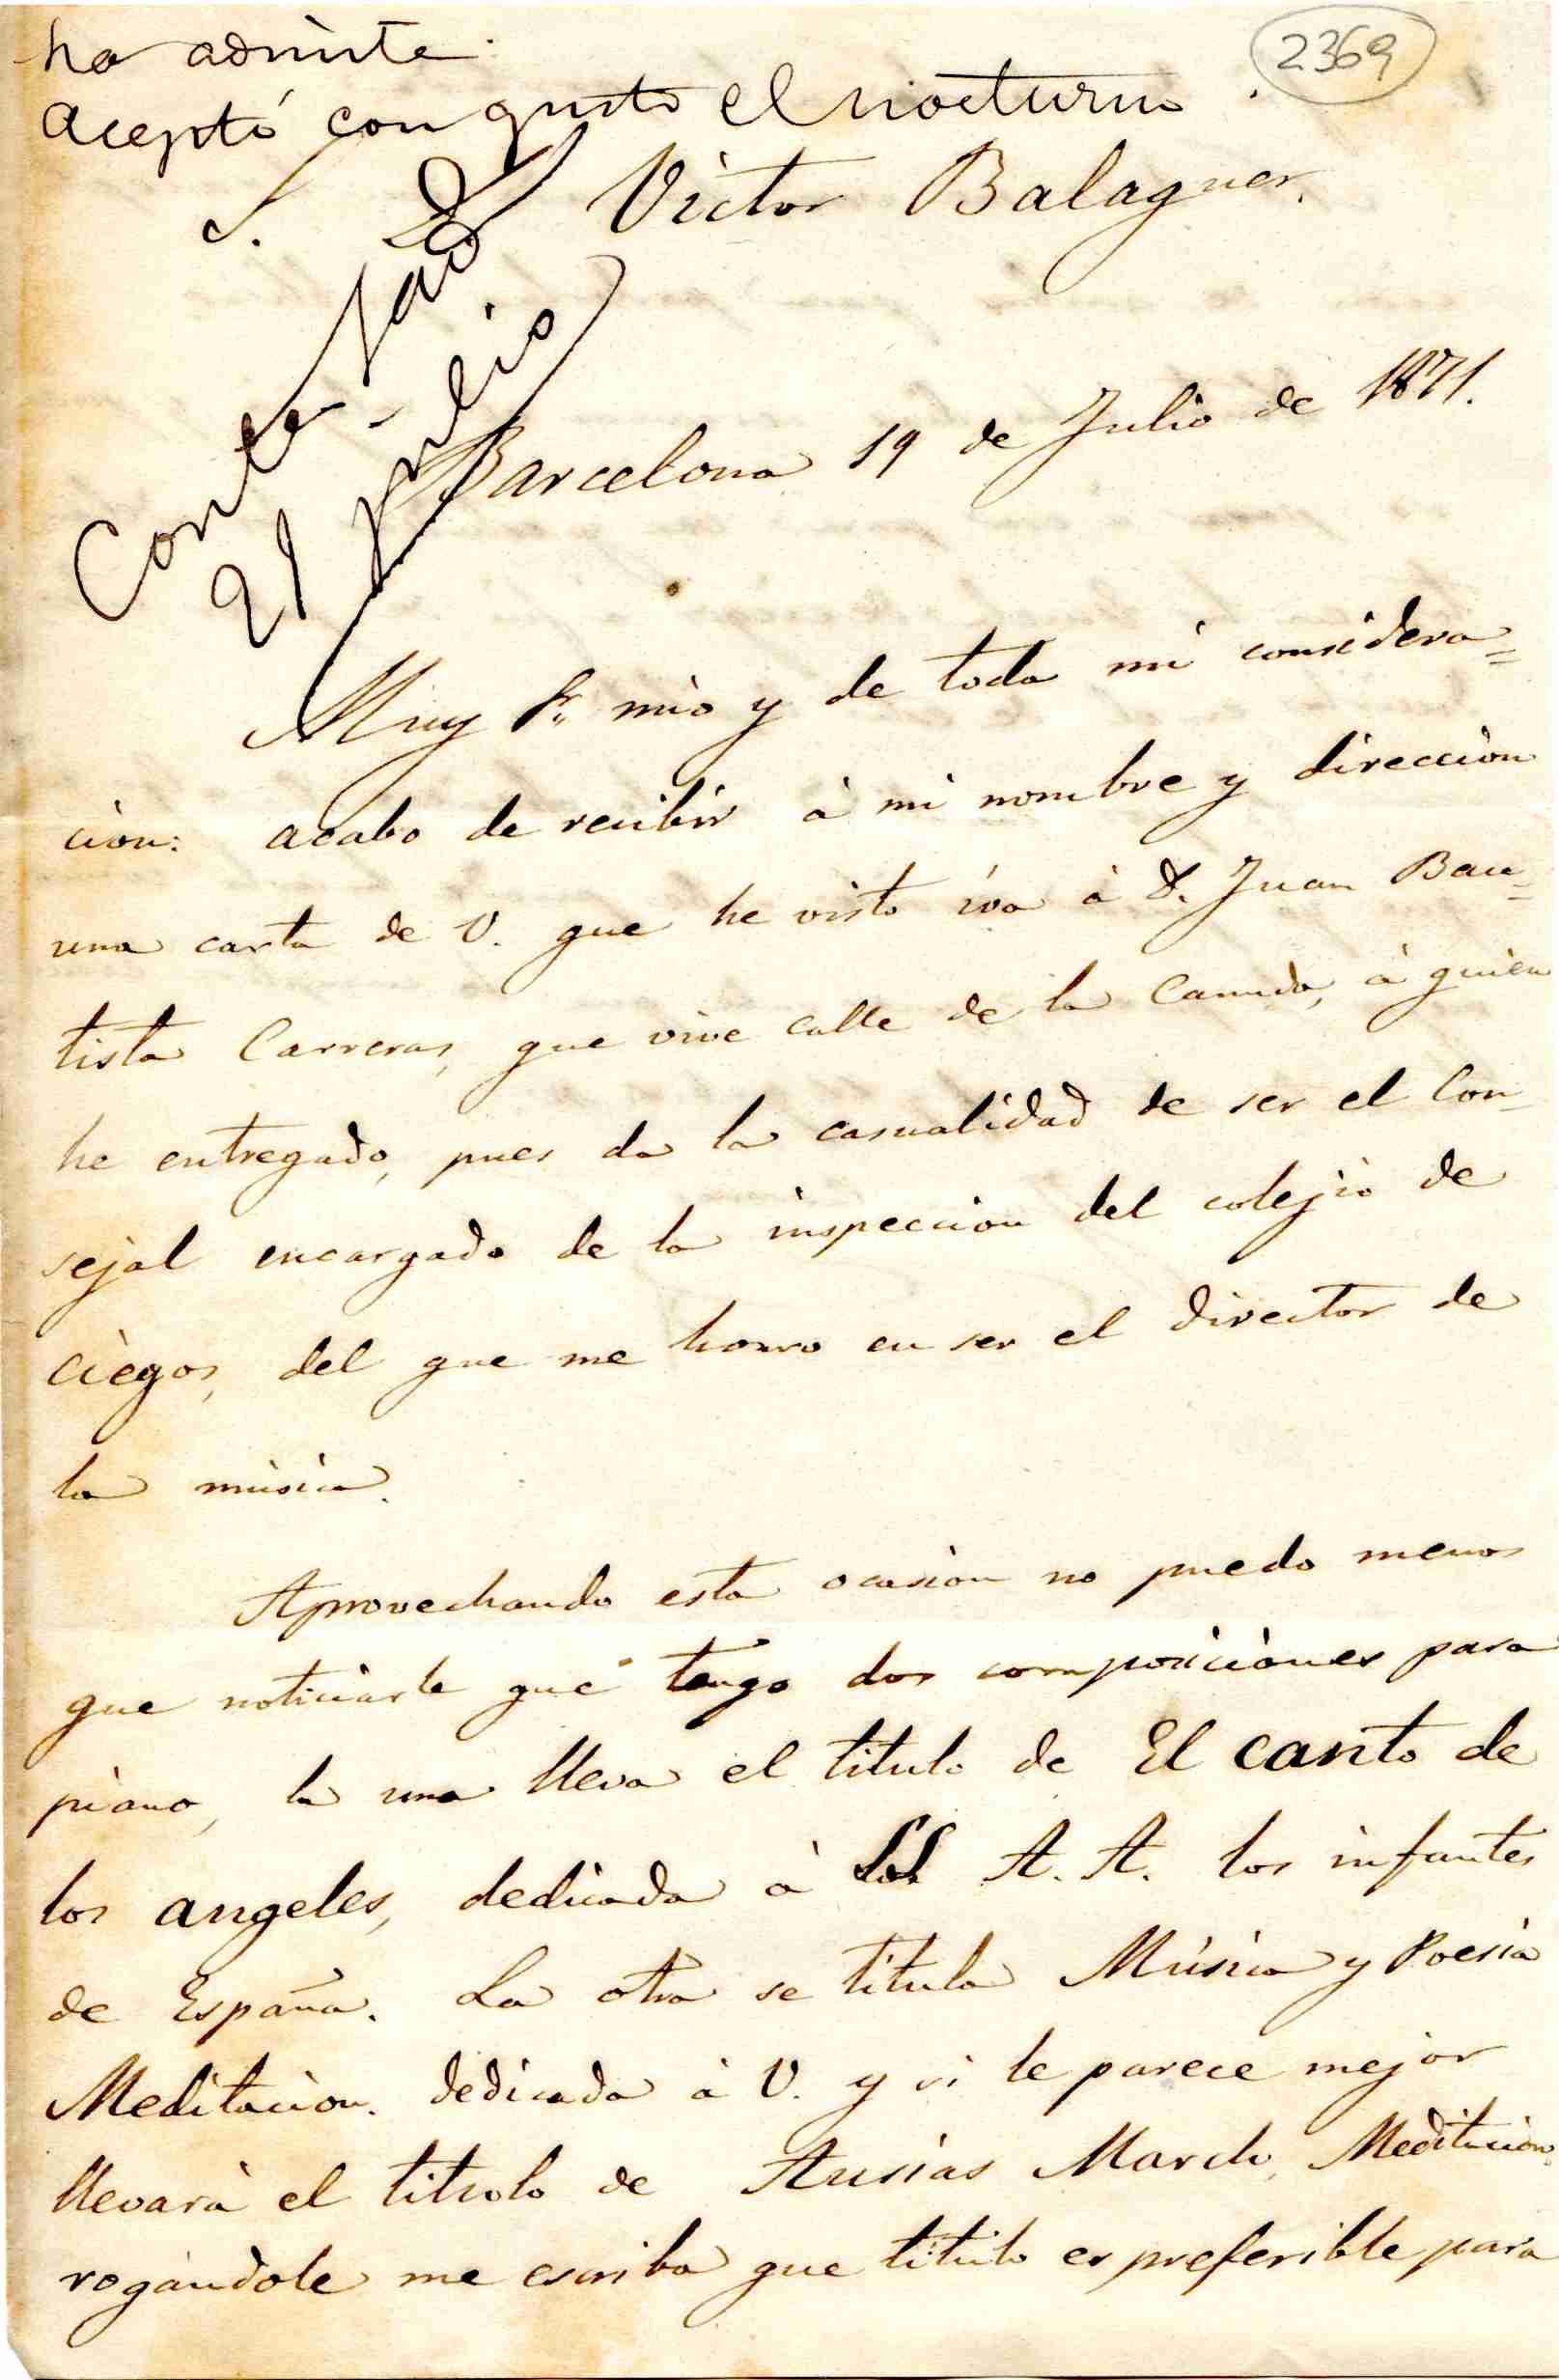 ha admite.
Acepto con gusto el nocturno.
2369
S. D. Victor Balaguer.
Contestado
21 julio
Barcelona 19 de Julio de 1871.
Muy Sr. mio y de toda mi considera=
cion: acabo de recibir à mi nombre y direccion
una carta de V. que he visto iva à D. Juan Bau=
tista Carreras, que vive calle de la Canuda, à quien
he entregado, pues da la casualidad de ser el Con=
sejal encargado de la inspeccion del colejio de
ciegos, del que me honro en ser el director de
la música.
Aprovechando esta ocasion no puedo menos
que noticiarle que tengo dos composiciones para
piano, la una lleva el titulo de El canto de
los angeles, dedicada à SS. A. A. los infantes
de España. La otra se titula Música y Poesia
Meditacion. dedicada à V. y si le parece mejor
llevarà el titulo de Ausias March, Meditacion,
rogàndole me escriba que titulo es preferible para